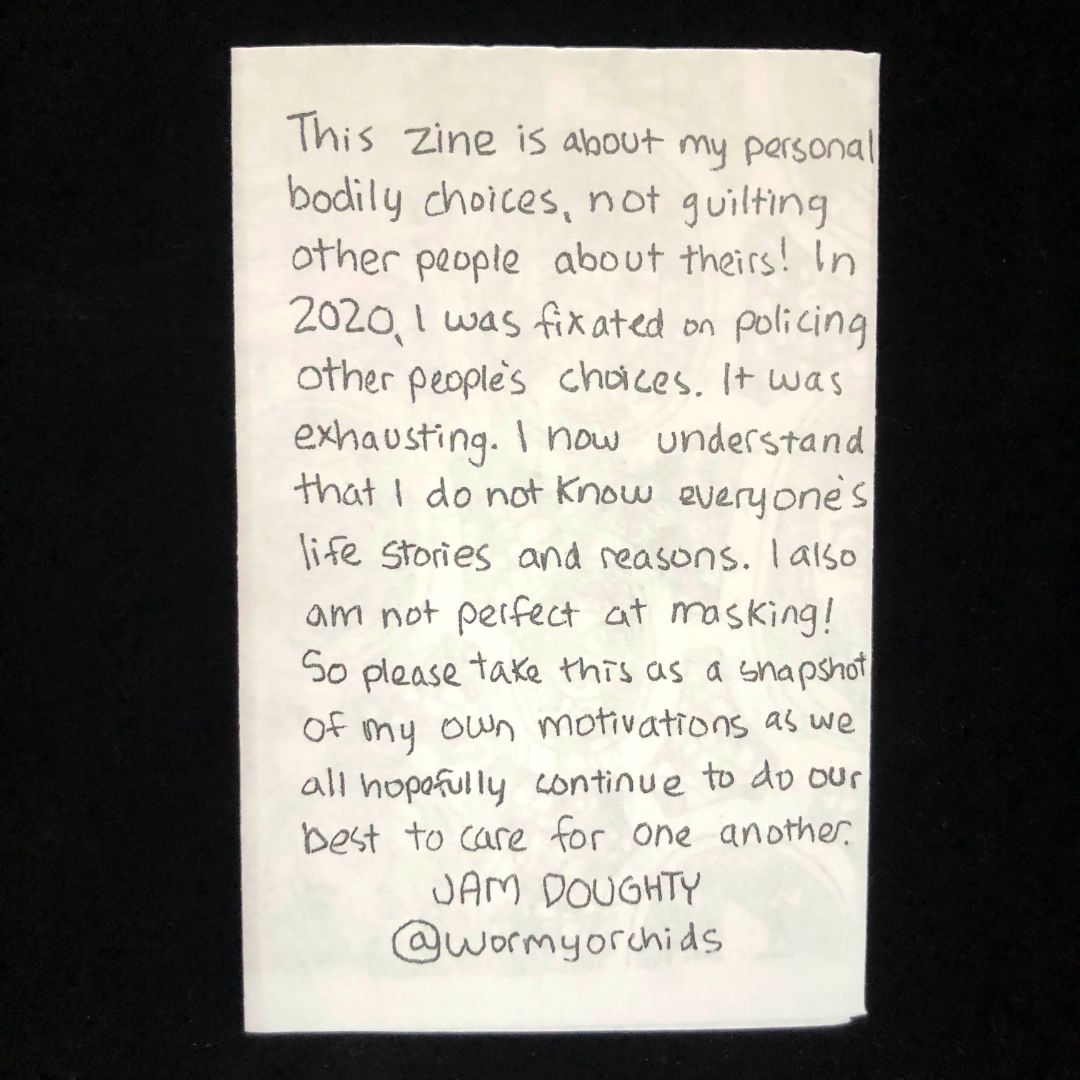 This zine is about my personal
bodily choices, not guilting
other people about theirs! In
2020, I was fixated on policing
other people's choices. It was
exhausting. I now understand
that I do not know everyone's
life stories and reasons. I also
am not perfect at masking!
So please take this as a snapshot
of my own motivations as we
all hopefully continue to do our
best to care for one another.
JAM DOUGHTY
@wormyorchids